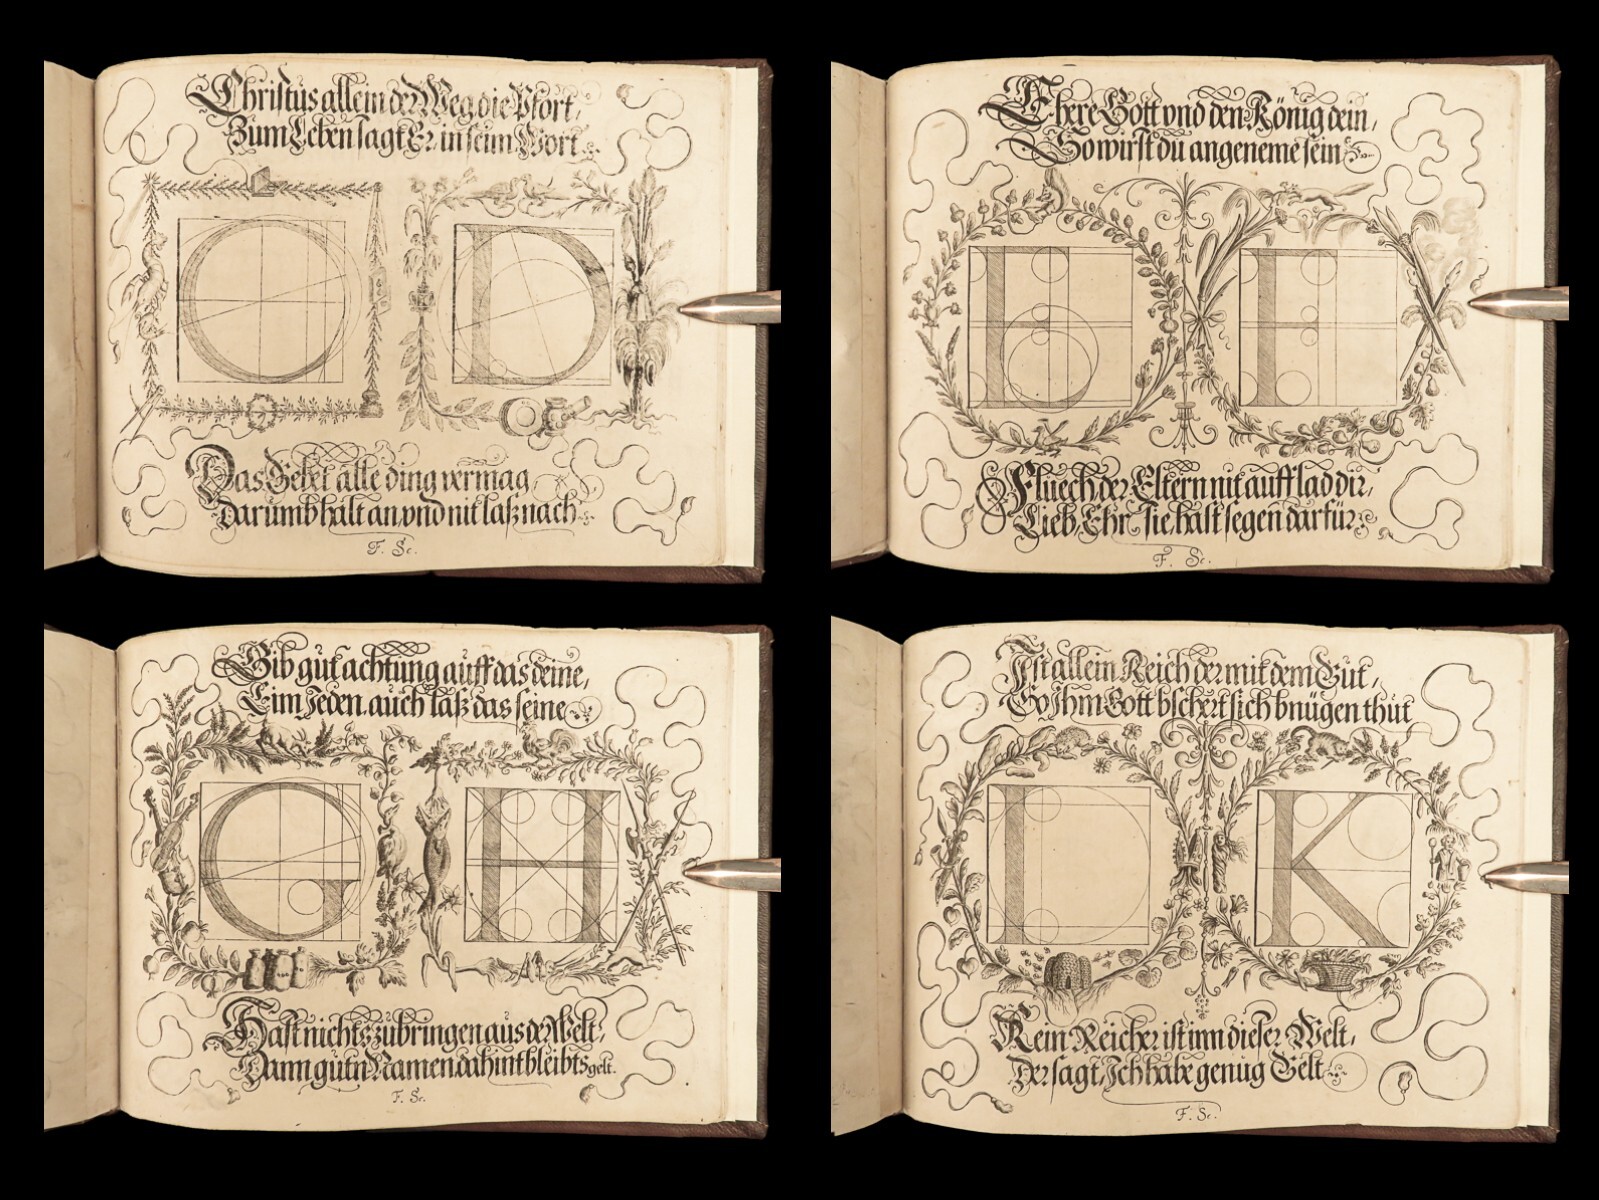 Christus allein der Weg, die Pfort,
Zum Leben sagt Er in seim Wort.
C D
Das Gebet alle ding vermag
Darumb halt an vnd nit laß nach.
F. Sc.
Ehere Gott vnd den König dein,
So wirst du angeneme sein
E F
Fluech der Eltern nit auff lad dir,
Lieb, Ehr sie, hast segen darfür.
F. Sc.
Gib gut achtung auff das deine,
Eim Jeden auch laß das seine
G H
Hast nichts zubringen aus der Welt,
Dann gutn Namen dahint bleibts gelt.
F. Sc.
Ist allein Reich der mit dem Gut,
So Jhm Gott bschert sich bnügen thut
I K
Kein Reicher ist inn dieser Welt,
Der sagt, Ich habe genug Gelt
F. Sc.